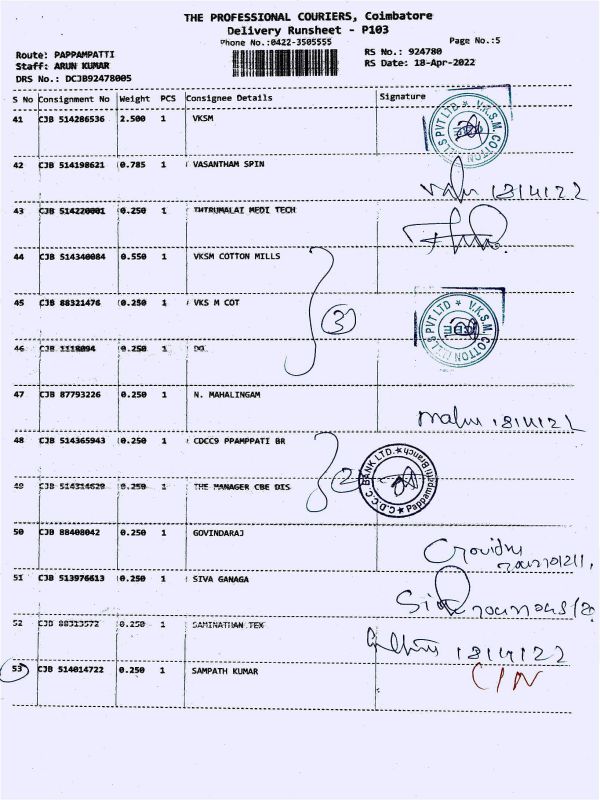 THE PROFESSIONAL COURIERS, Coimbatore
Delivery Runsheet - P103
Phone No.:0422-3505555
Page No.:5
Route: PAPPAMPATTI
RS No.: 924780
Staff: ARUN KUMAR
RS Date: 18-Apr-2022
DRS No.: DCJB92478005
S No Consignment No Weight PCS Consignee Details Signature
41 CJB 514286536 2.500 1 VKSM
V.K.S.M. COTTON MILLS PVT LTD
42 CJB 514198621 0.785 1 VASANTHAM SPIN
18/4/22
43 CJB 514220001 0.250 1 THIRUMALAI MEDI TECH
44 CJB 514340084 0.550 1 VKSM COTTON MILLS
45 CJB 88321476 0.250 1 VKS M COT
3
V.K.S.M. COTTON MILLS PVT LTD
46 CJB 1118094 0.250 1 DO
47 CJB 87793226 0.250 1 N. MAHALINGAM
18/4/22
48 CJB 514365943 0.250 1 CDCC9 PPAMPPATI BR
2
C.D.C.C. BANK LTD. Pappampatti Branch
49 CJB 514314629 0.250 1 THE MANAGER CBE DIS
50 CJB 88408042 0.250 1 GOVINDARAJ
51 CJB 513976613 0.250 1 SIVA GANAGA
52 CJB 88313572 0.250 1 SAMINATHAN TEX
18/4/22
53 CJB 514014722 0.250 1 SAMPATH KUMAR
C/N